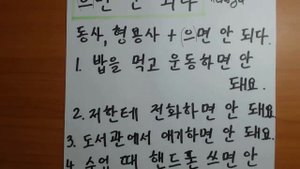 으면 안 되다
동사, 형용사 + 으면 안 되다.
1. 밥을 먹고 운동하면 안
돼요.
2. 저한테 전화하면 안 돼요.
3. 도서관에서 얘기하면 안 돼요.
4. 수업 때 핸드폰 쓰면 안